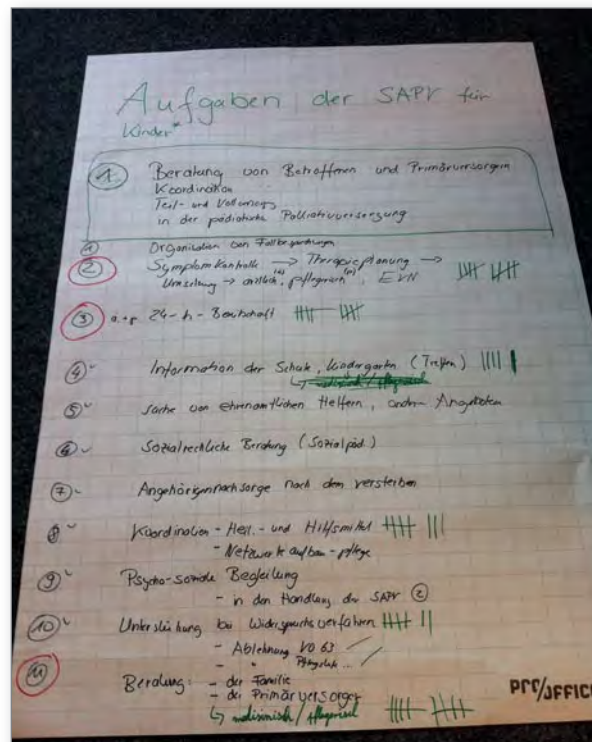 Aufgaben der SAPV für
Kinder*
1. Beratung von Betroffenen und Primärversorgern
Koordination
Teil- und Vollversorg
in der pädiatrische Palliativversorgung
① Organisation von Fallbesprechungen
② Symptomkontrolle → Therapieplanung →
Umsetzung → ärztlich (a), pflegerisch (p), EVN
③ a.+p. 24-h-Bereitschaft
④ Information der Schule, Kindergarten (Treffen)
↳ medizinisch / pflegerisch
⑤ Suche von ehrenamtlichen Helfern, andern Angeboten
⑥ Sozialrechtliche Beratung (Sozialpäd.)
⑦ Angehörigennachsorge nach dem versterben
8 Koordination - Heil- und Hilfsmittel
- Netzwerk aufbau - pflege
⑨ Psycho-soziale Begleitung
- in den Handlung der SAPV ②
⑩ Unterstützung bei Widerspruchsverfahren
- Ablehnung VO 63
- " Pflegestufe...
⑪ Beratung: - der Familie
- der Primärversorger
↳ medizinisch / pflegerisch
pro/OFFICE